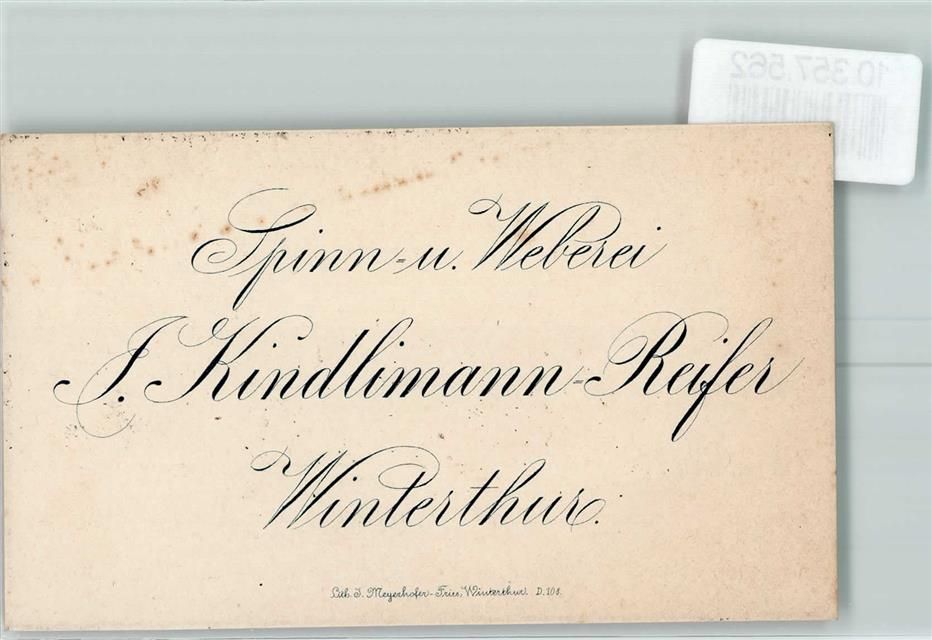 10.357.562
Spinn- u. Weberei
J. Kindlimann-Reifer
Winterthur.
Lith. J. Meyerhofer-Fries, Winterthur. D. 108.